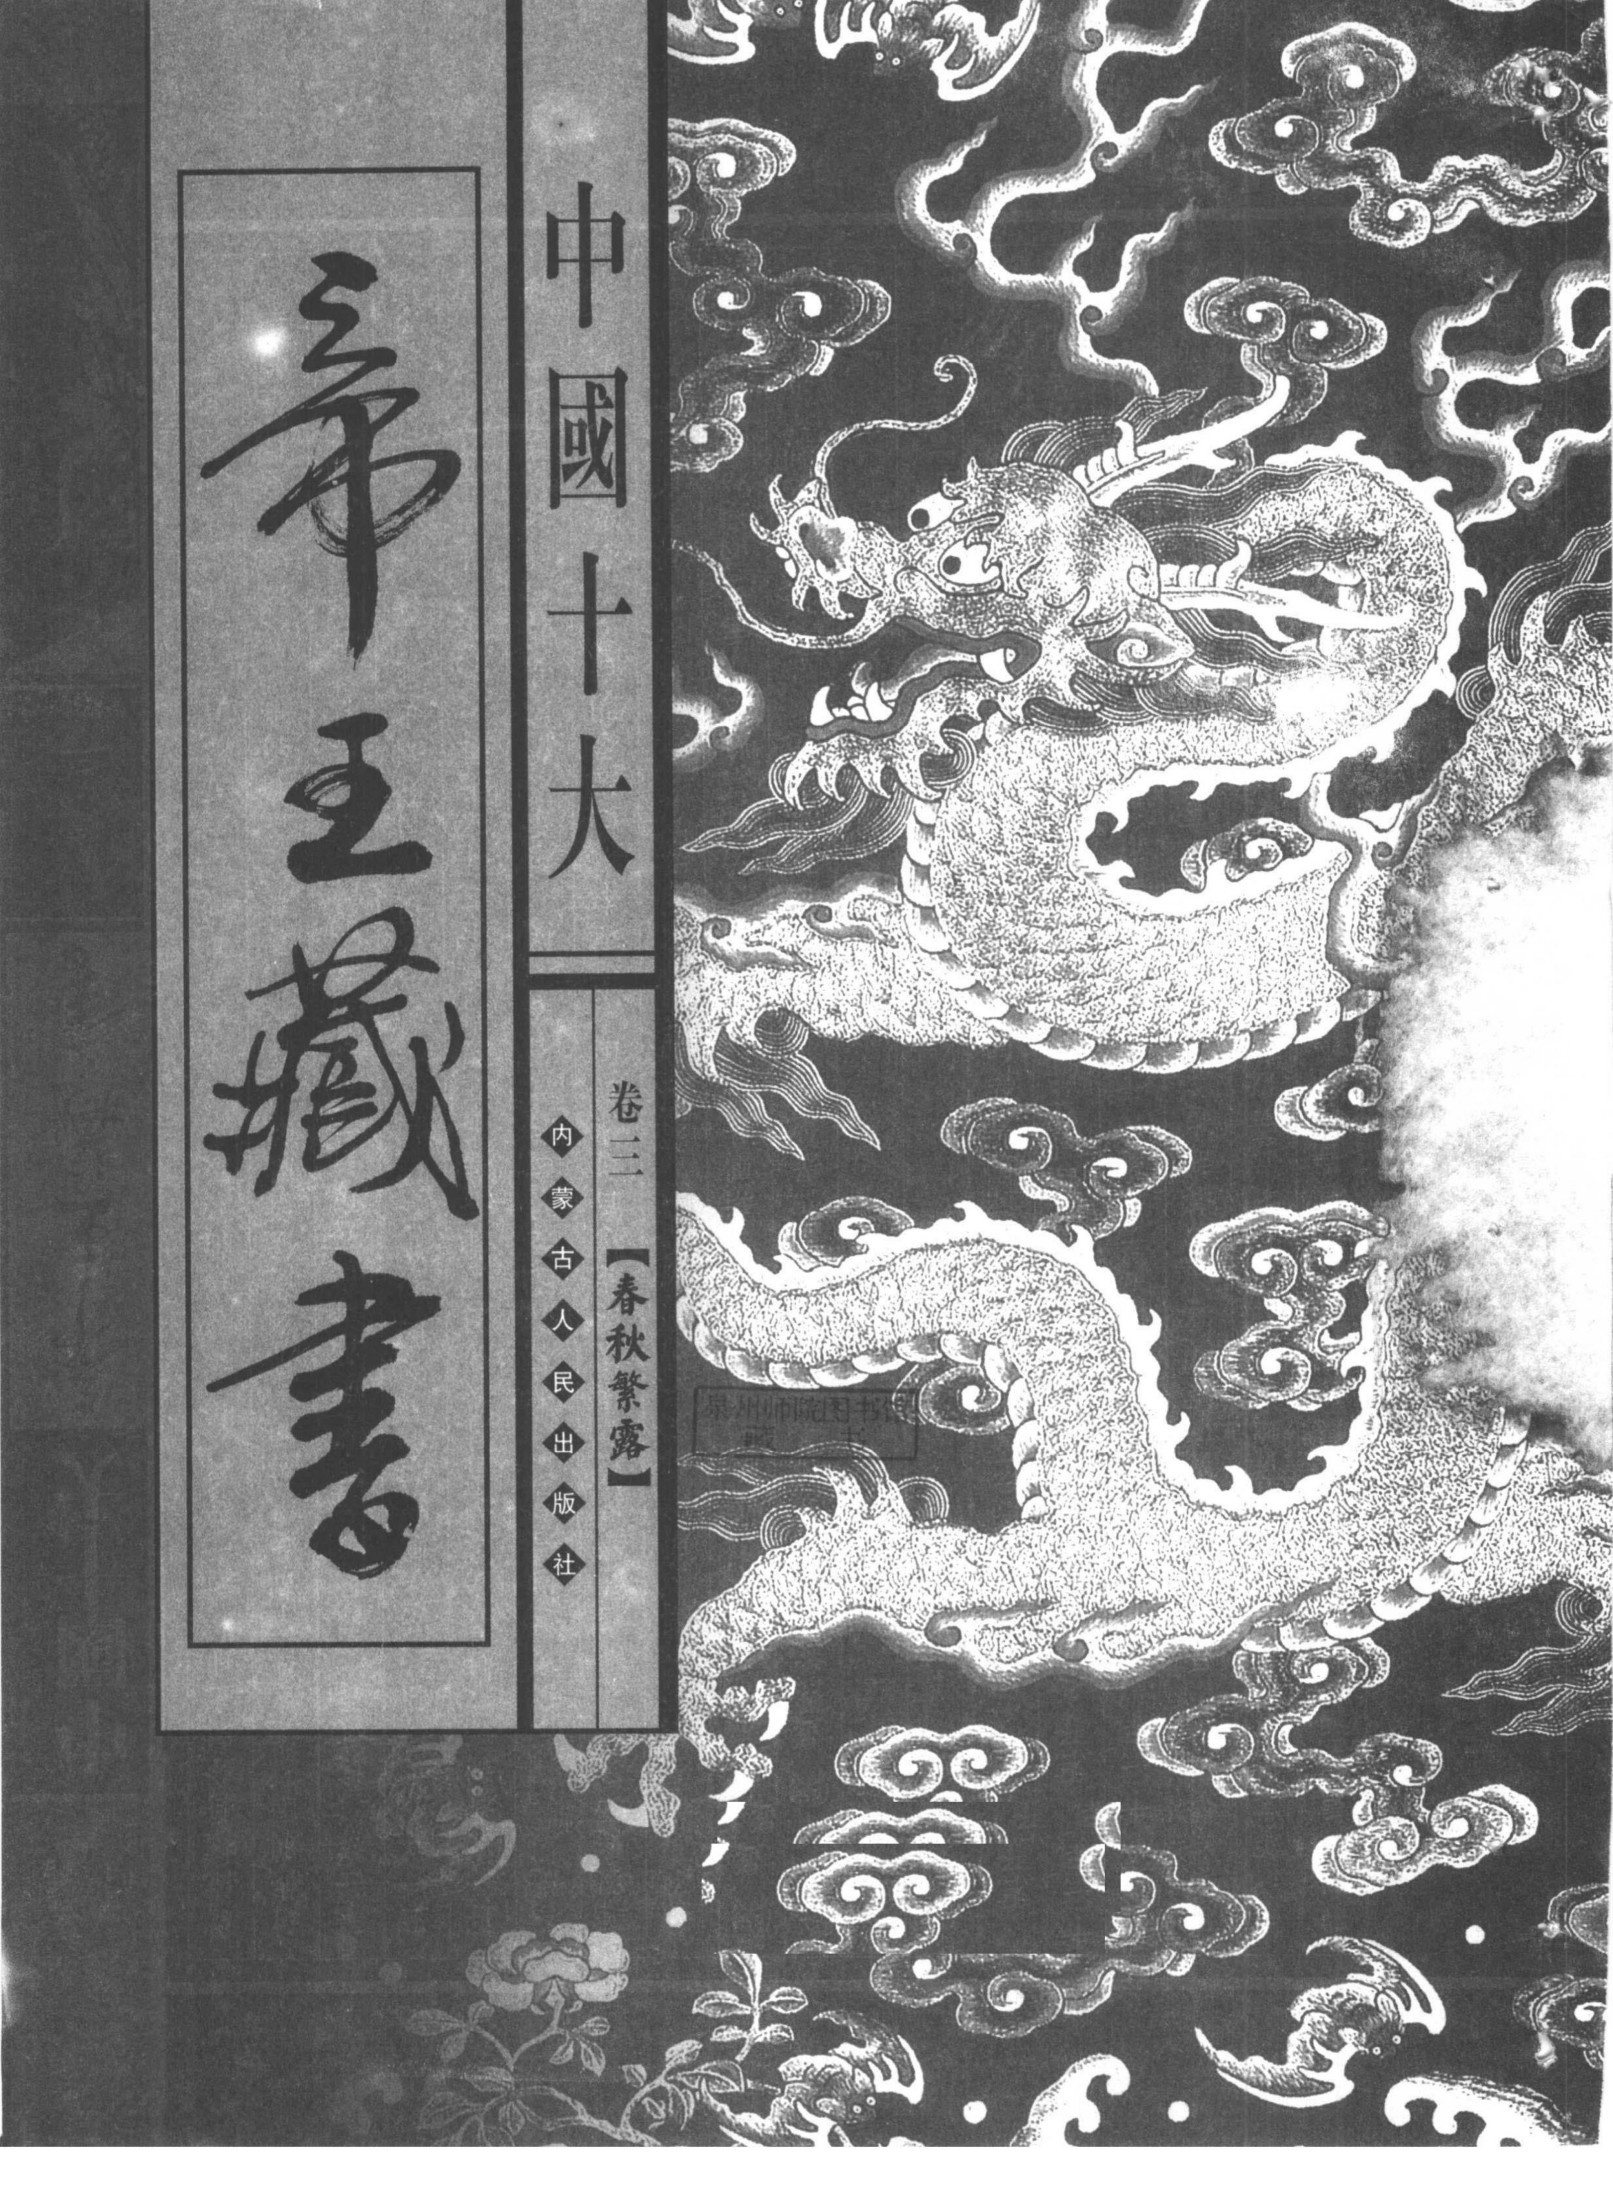 中國十大
帝王藏書
卷三 【春秋繁露】
内蒙古人民出版社
泉州师院图书馆
藏 书